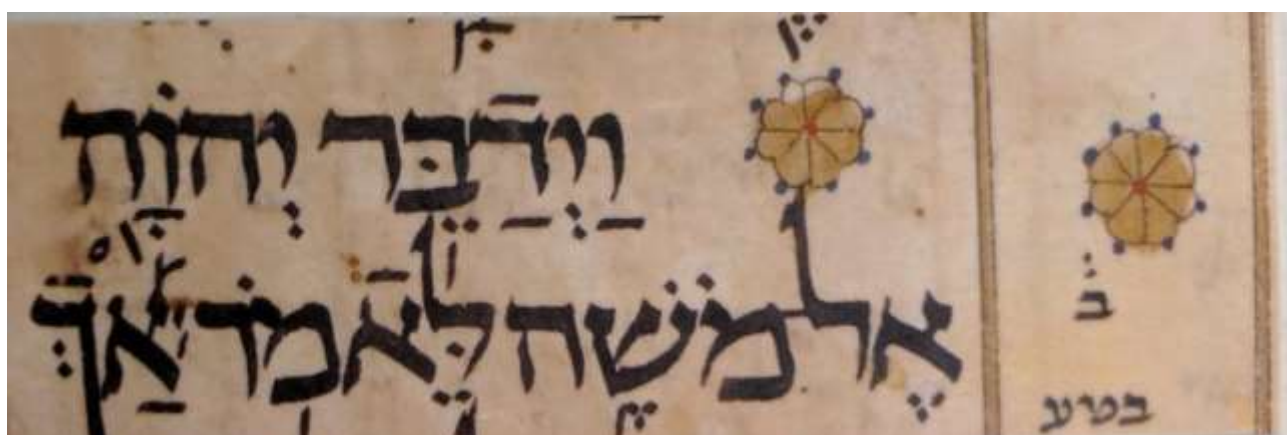 וַיְדַבֵּר יְהֹוָה
אֶל מֹשֶׁה לֵּאמֹר אַךְ
ב
בטע